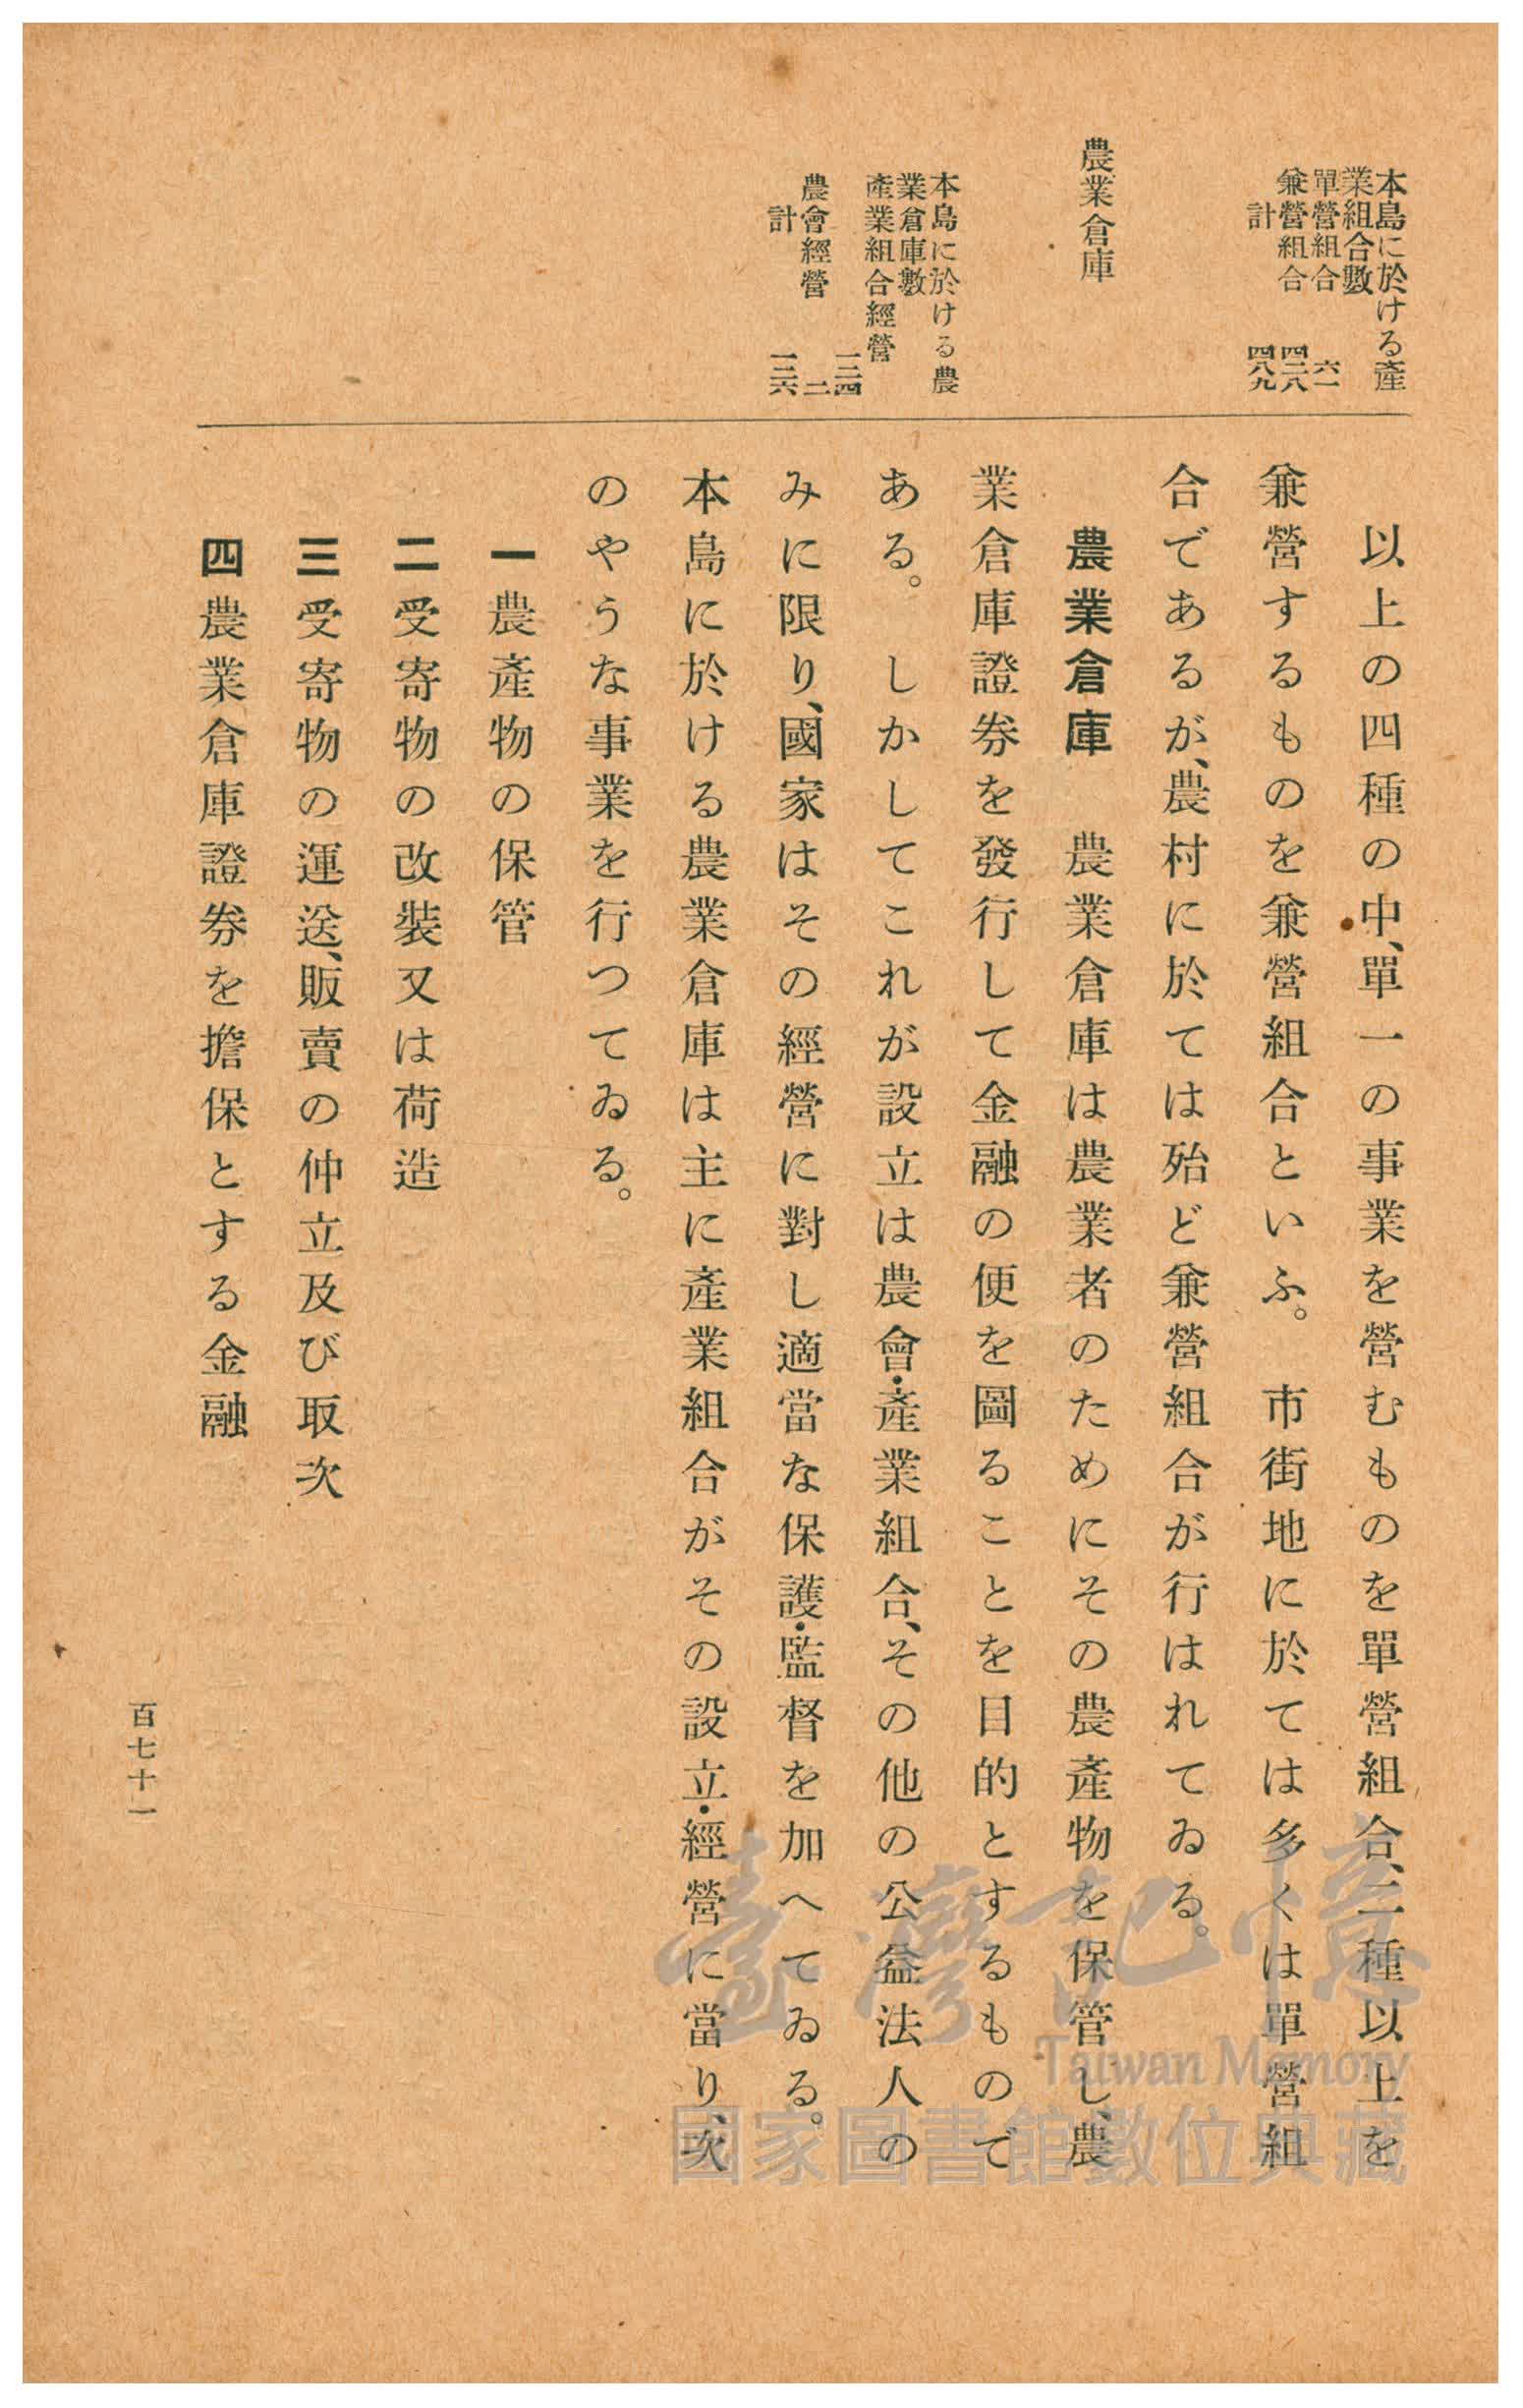 本島に於ける產
業組合數
單營組合 六一
兼營組合 四二八
計 四八九
農業倉庫
本島に於ける農
業倉庫數
產業組合經營
一三四
農會經營 二
計 一三六
以上の四種の中、單一の事業を營むものを單營組合、二種以上を
兼營するものを兼營組合といふ。 市街地に於ては多くは單營組
合であるが、農村に於ては殆ど兼營組合が行はれてゐる。
農業倉庫 農業倉庫は農業者のためにその農產物を保管し、農
業倉庫證券を發行して金融の便を圖ることを目的とするもので
ある。 しかしてこれが設立は農會・產業組合、その他の公益法人の
みに限り、國家はその經營に對し適當な保護・監督を加へてゐる。
本島に於ける農業倉庫は主に產業組合がその設立・經營に當り、次
のやうな事業を行つてゐる。
一 農產物の保管
二 受寄物の改裝又は荷造
三 受寄物の運送、販賣の仲立及び取次
四 農業倉庫證券を擔保とする金融
百七十一
臺灣記憶
Taiwan Memory
國家圖書館數位典藏